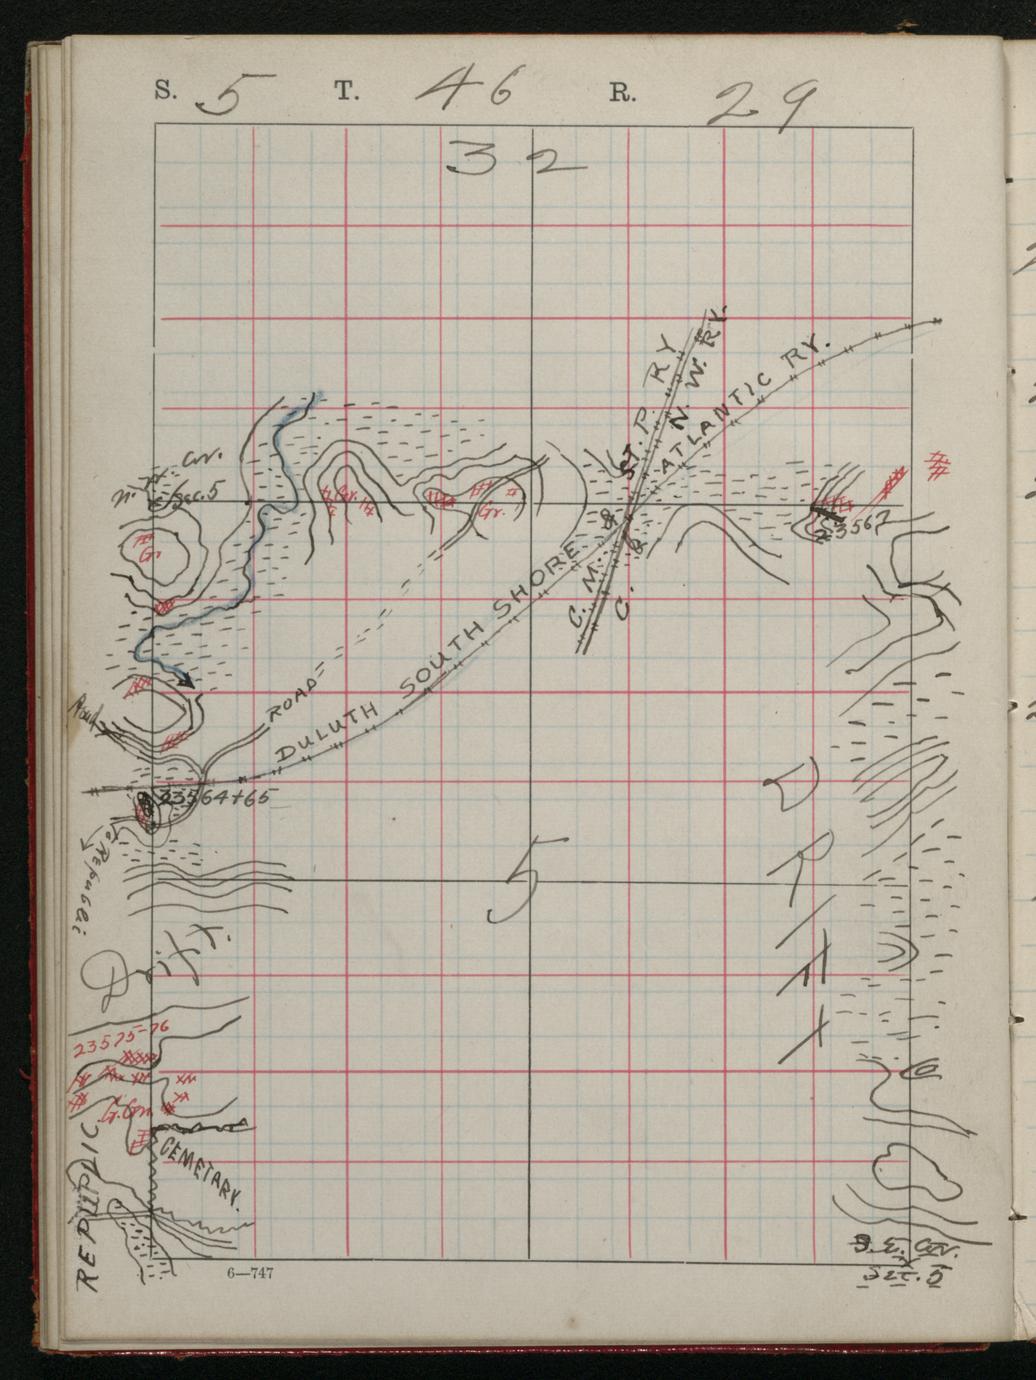 S. 5 T. 46 R. 29
32
C. M. & ST. P. RY
C. & N. W. RY.
DULUTH SOUTH SHORE & ATLANTIC RY.
N. W. Cor.
Sec. 5
Gr.
Gr.
Gr.
23567
Road
ROAD
23564+65
To Republic
5
DRIFT
Drift
23575-76
Gr. Grn.
CEMETARY.
REPUPLIC
S. E. Cor.
Sec. 5
6—747